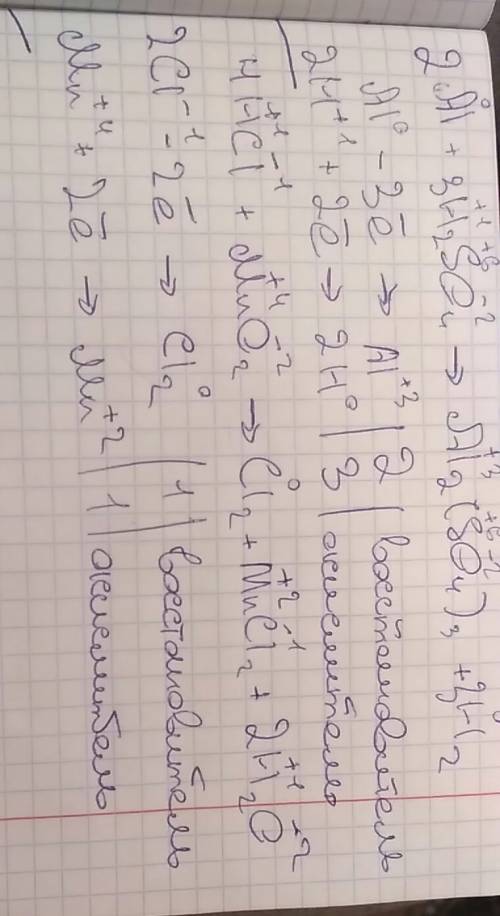 2Al⁰ + 3H₂⁺¹S⁺⁶O₄⁻² → Al₂⁺³(S⁺⁶O₄⁻²)₃ + 2H₂⁰
Al⁰ - 3ē → Al⁺³ | 2 | восстановитель
2H⁺¹ + 2ē → 2H⁰ | 3 | окислитель
4H⁺¹Cl⁻¹ + Mn⁺⁴O₂⁻² → Cl₂⁰ + Mn⁺²Cl₂⁻¹ + 2H₂⁺¹O⁺²
2Cl⁻¹ - 2ē → Cl₂⁰ | 1 | восстановитель
Mn⁺⁴ + 2ē → Mn⁺² | 1 | окислитель